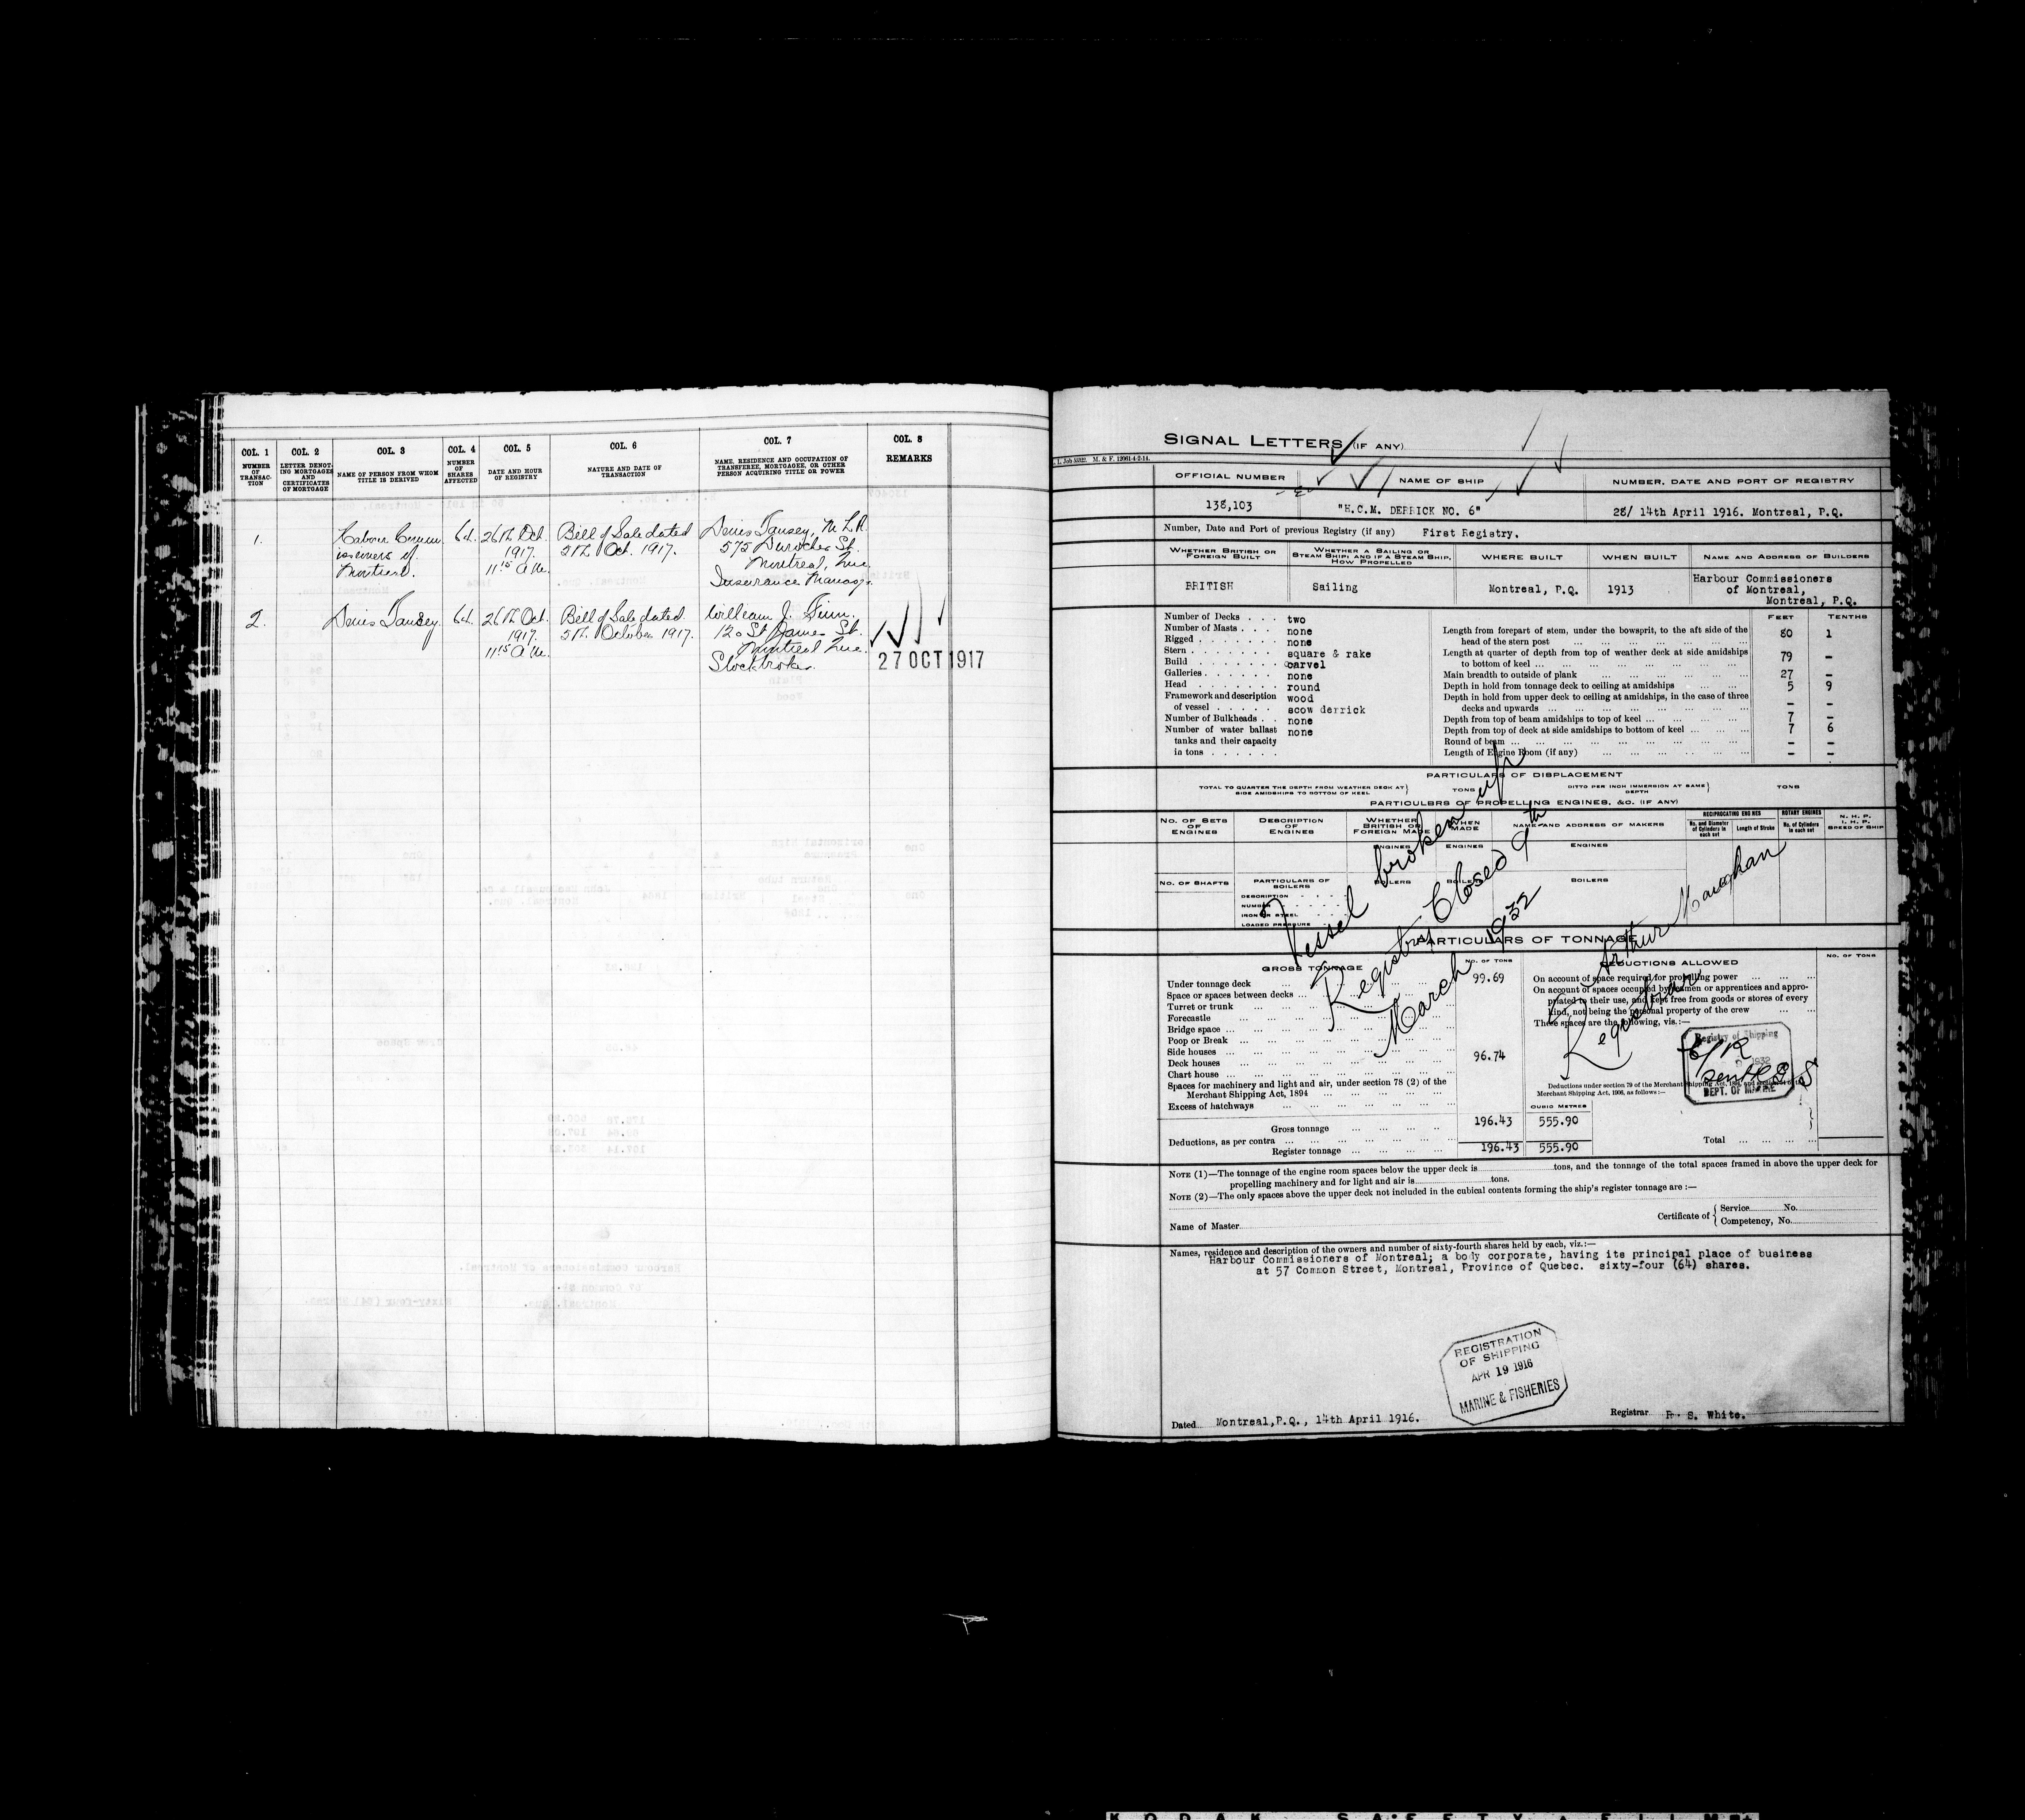 COL. 1
NUMBER
OF
TRANSAC-
TION
COL. 2
LETTER DENOT-
ING MORTGAGES
AND
CERTIFICATES
OF MORTGAGE
COL. 3
NAME OF PERSON FROM WHOM
TITLE IS DERIVED
COL. 4
NUMBER
OF
SHARES
AFFECTED
COL. 5
DATE AND HOUR
OF REGISTRY
COL. 6
NATURE AND DATE OF
TRANSACTION
COL. 7
NAME, RESIDENCE AND OCCUPATION OF
TRANSFEREE, MORTGAGEE, OR OTHER
PERSON ACQUIRING TITLE OR POWER
COL. 8
REMARKS
1.
Harbour Comm
issioners of
Montreal.
64.
26th Oct.
1917.
11 15 a.m.
Bill of Sale dated
5th Oct. 1917.
Denis Tansey, M.L.A.
575 Durocher St.
Montreal, Que.
Insurance Manager.
2.
Denis Tansey.
64.
26th Oct.
1917.
11 15 a.m.
Bill of Sale dated
5th October 1917.
William J.
120 St James St.
Montreal Que.
Stockbroker.
27 OCT 1917
SIGNAL LETTERS (IF ANY)
M. & F. 12061-4-2-14.
OFFICIAL NUMBER
NAME OF SHIP
NUMBER, DATE AND PORT OF REGISTRY
138,103
"H.C.M. DERRICK NO. 6"
28/ 14th April 1916. Montreal, P.Q.
Number, Date and Port of previous Registry (if any) First Registry.
WHETHER BRITISH OR
FOREIGN BUILT
WHETHER A SAILING OR
STEAM SHIP, AND IF A STEAM SHIP,
HOW PROPELLED
WHERE BUILT
WHEN BUILT
NAME AND ADDRESS OF BUILDERS
BRITISH
Sailing
Montreal, P.Q.
1913
Harbour Commissioners
of Montreal,
Montreal, P.Q.
Number of Decks . . . two
Number of Masts . . . none
Rigged . . . . . . . none
Stern . . . . . . . . square & rake
Build . . . . . . . carvel
Galleries . . . . . . none
Head . . . . . . . round
Framework and description wood
of vessel . . . . . scow derrick
Number of Bulkheads . . none
Number of water ballast none
tanks and their capacity
in tons . . . . . . .
FEET TENTHS
Length from forepart of stem, under the bowsprit, to the aft side of the
head of the stern post 80 1
Length at quarter of depth from top of weather deck at side amidships
to bottom of keel 79 –
Main breadth to outside of plank 27 –
Depth in hold from tonnage deck to ceiling at amidships 5 9
Depth in hold from upper deck to ceiling at amidships, in the case of three
decks and upwards – –
Depth from top of beam amidships to top of keel 7 –
Depth from top of deck at side amidships to bottom of keel 7 6
Round of beam – –
Length of Engine Room (if any) – –
PARTICULARS OF DISPLACEMENT
TOTAL TO QUARTER THE DEPTH FROM WEATHER DECK AT
SIDE AMIDSHIPS TO BOTTOM OF KEEL
TONS
DITTO PER INCH IMMERSION AT SAME
DEPTH
TONS
PARTICULBRS OF PROPELLING ENGINES, &C. (IF ANY)
NO. OF SETS
OF
ENGINES
DESCRIPTION
OF
ENGINES
WHETHER
BRITISH OR
FOREIGN MADE
WHEN
MADE
NAME AND ADDRESS OF MAKERS
RECIPROCATING ENGINES
No. and Diameter
of Cylinders in
each set
Length of Stroke
ROTARY ENGINES
No. of Cylinders
in each set
N. H. P.
I. H. P.
SPEED OF SHIP
ENGINES
ENGINES
ENGINES
NO. OF SHAFTS
PARTICULARS OF
BOILERS
BOILERS
BOILERS
BOILERS
DESCRIPTION
NUMBER
IRON OR STEEL
LOADED PRESSURE
Vessel broken up
Registry Closed 9th
March 1932
Arthur Monaghan
Registrar
PARTICULARS OF TONNAGE
GROSS TONNAGE
NO. OF TONS
Under tonnage deck 99.69
Space or spaces between decks
Turret or trunk
Forecastle
Bridge space
Poop or Break
Side houses
Deck houses 96.74
Chart house
Spaces for machinery and light and air, under section 78 (2) of the
Merchant Shipping Act, 1894
Excess of hatchways
CUBIC METRES
Gross tonnage 196.43 555.90
Deductions, as per contra
Register tonnage 196.43 555.90
DEDUCTIONS ALLOWED
NO. OF TONS
On account of space required for propelling power
On account of spaces occupied by seamen or apprentices and appro-
priated to their use, and kept free from goods or stores of every
kind, not being the personal property of the crew
These spaces are the following, viz.:—
Registry of Shipping
1932
DEPT. OF MARINE
Deductions under section 79 of the Merchant Shipping Act,
Merchant Shipping Act, 1906, as follows:—
Total
NOTE (1)—The tonnage of the engine room spaces below the upper deck is tons, and the tonnage of the total spaces framed in above the upper deck for
propelling machinery and for light and air is tons.
NOTE (2)—The only spaces above the upper deck not included in the cubical contents forming the ship's register tonnage are :—
Name of Master
Certificate of { Service No.
Competency, No.
Names, residence and description of the owners and number of sixty-fourth shares held by each, viz.:—
Harbour Commissioners of Montreal; a body corporate, having its principal place of business
at 57 Common Street, Montreal, Province of Quebec. sixty-four (64) shares.
REGISTRATION
OF SHIPPING
APR 19 1916
MARINE & FISHERIES
Dated Montreal, P.Q., 14th April 1916.
Registrar R. S. White.